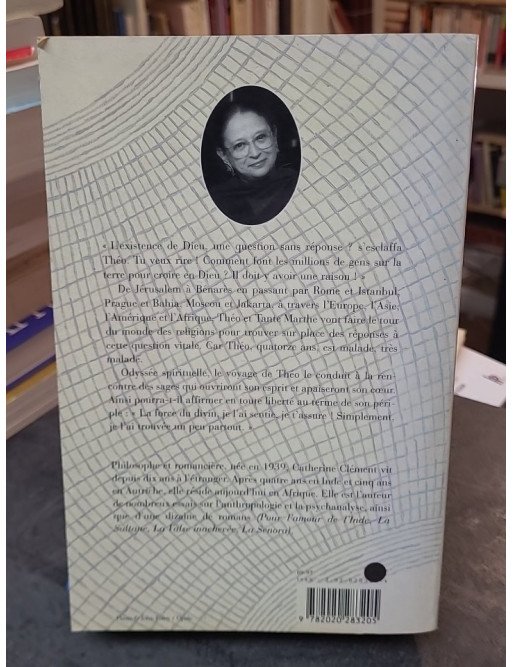 « L'existence de Dieu, une question sans réponse ? s'esclaffa
Théo. Tu veux rire ! Comment font les millions de gens sur la
terre pour croire en Dieu ? Il doit y avoir une raison ! »
De Jérusalem à Bénarès en passant par Rome et Istanbul,
Prague et Bahia, Moscou et Jakarta, à travers l'Europe, l'Asie,
l'Amérique et l'Afrique, Théo et Tante Marthe vont faire le tour
du monde des religions pour trouver sur place des réponses à
cette question vitale. Car Théo, quatorze ans, est malade, très
malade.
Odyssée spirituelle, le voyage de Théo le conduit à la ren-
contre des sages qui ouvriront son esprit et apaiseront son cœur.
Ainsi pourra-t-il affirmer en toute liberté au terme de son péri-
ple : « La force du divin, je l'ai sentie, je t'assure ! Simplement,
je l'ai trouvée un peu partout. »
Philosophe et romancière, née en 1939, Catherine Clément vit
depuis dix ans à l'étranger. Après quatre ans en Inde et cinq ans
en Autriche, elle réside aujourd'hui en Afrique. Elle est l'auteur
de nombreux essais sur l'anthropologie et la psychanalyse, ainsi
que d'une dizaine de romans (Pour l'amour de l'Inde, La
Sultane, La Señora).
9 782020 283205